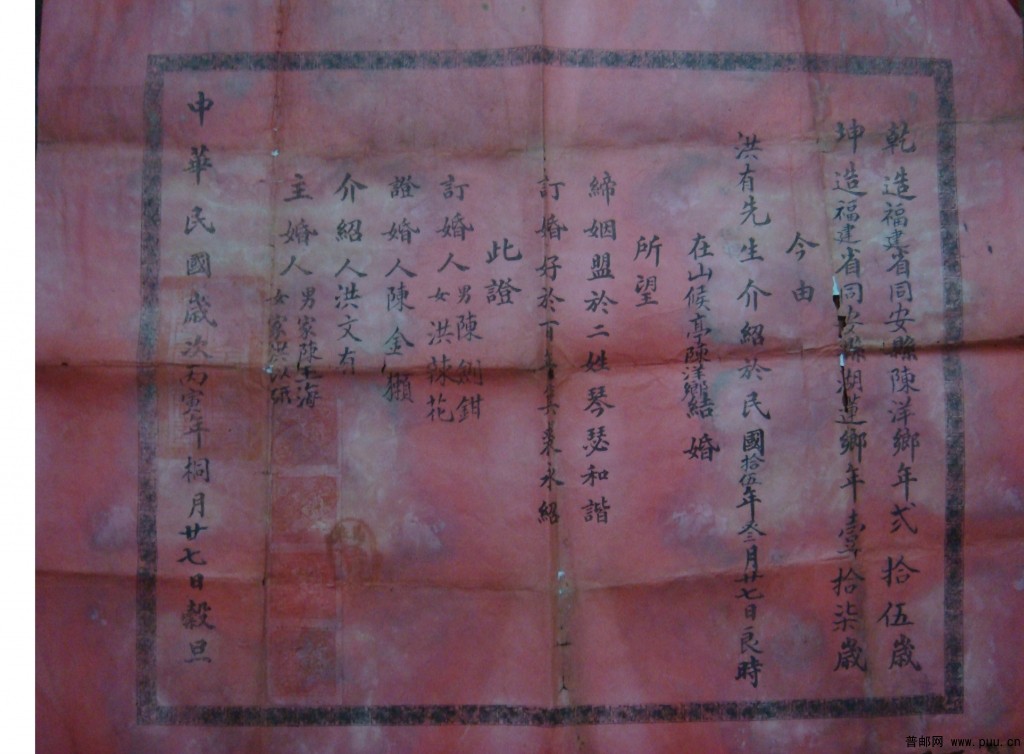 乾造福建省同安縣陳洋鄉年弍拾伍歲
坤造福建省同安縣湖蓮鄉年壹拾柒歲
今由
洪有先生介紹於民國拾伍年叁月廿七日良時
在山候亭陳洋鄉結婚
所望
締姻盟於二姓琴瑟和諧
訂婚好於百年 裘永紹
此證
訂婚人男陳 鉗
女洪 花
證婚人陳金獺
介紹人洪文有
主婚人男家陳 海
女家洪以
中華民國歲次丙寅年桐月廿七日穀旦
普邮网 www.puu.cn